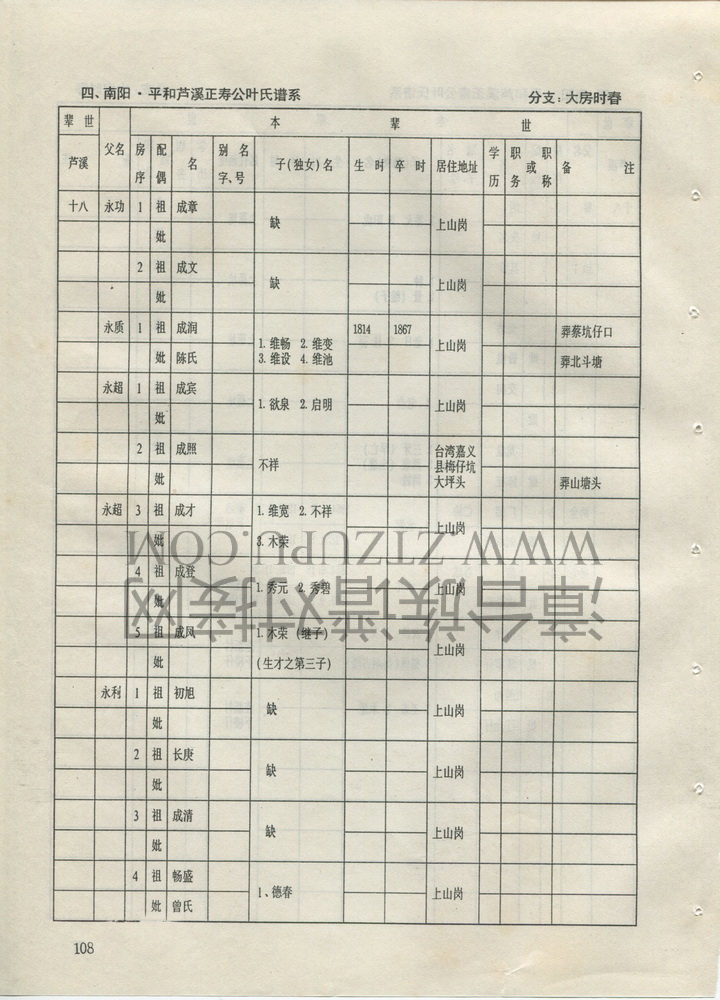 四、南阳·平和芦溪正寿公叶氏谱系 分支：大房时春
辈世 本 辈 世
芦溪 父名 房序 配偶 名 别名字、号 子(独女)名 生时 卒时 居住地址 学历 职务或职称 备注
十八 永功 1 祖 成章 缺 上山岗
妣
2 祖 成文 缺 上山岗
妣
永质 1 祖 成润 1.维畅 2.维变 1814 1867 上山岗 葬蔡坑仔口
妣 陈氏 3.维设 4.维池 葬北斗塘
永超 1 祖 成宾 1.欲泉 2.启明 上山岗
妣
2 祖 成照 不祥 台湾嘉义
县梅仔坑
妣 大坪头 葬山塘头
永超 3 祖 成才 1.维宽 2.不祥 上山岗
妣 3.木荣
4 祖 成登 1.秀元 2.秀碧 上山岗
妣
5 祖 成凤 1.木荣（继子） 上山岗
妣 (生才之第三子)
永利 1 祖 初旭 缺 上山岗
妣
2 祖 长庚 缺 上山岗
妣
3 祖 成清 缺 上山岗
妣
4 祖 畅盛 1、德春 上山岗
妣 曾氏
108
漳台族谱对接网
WWW.ZTZUPU.COM